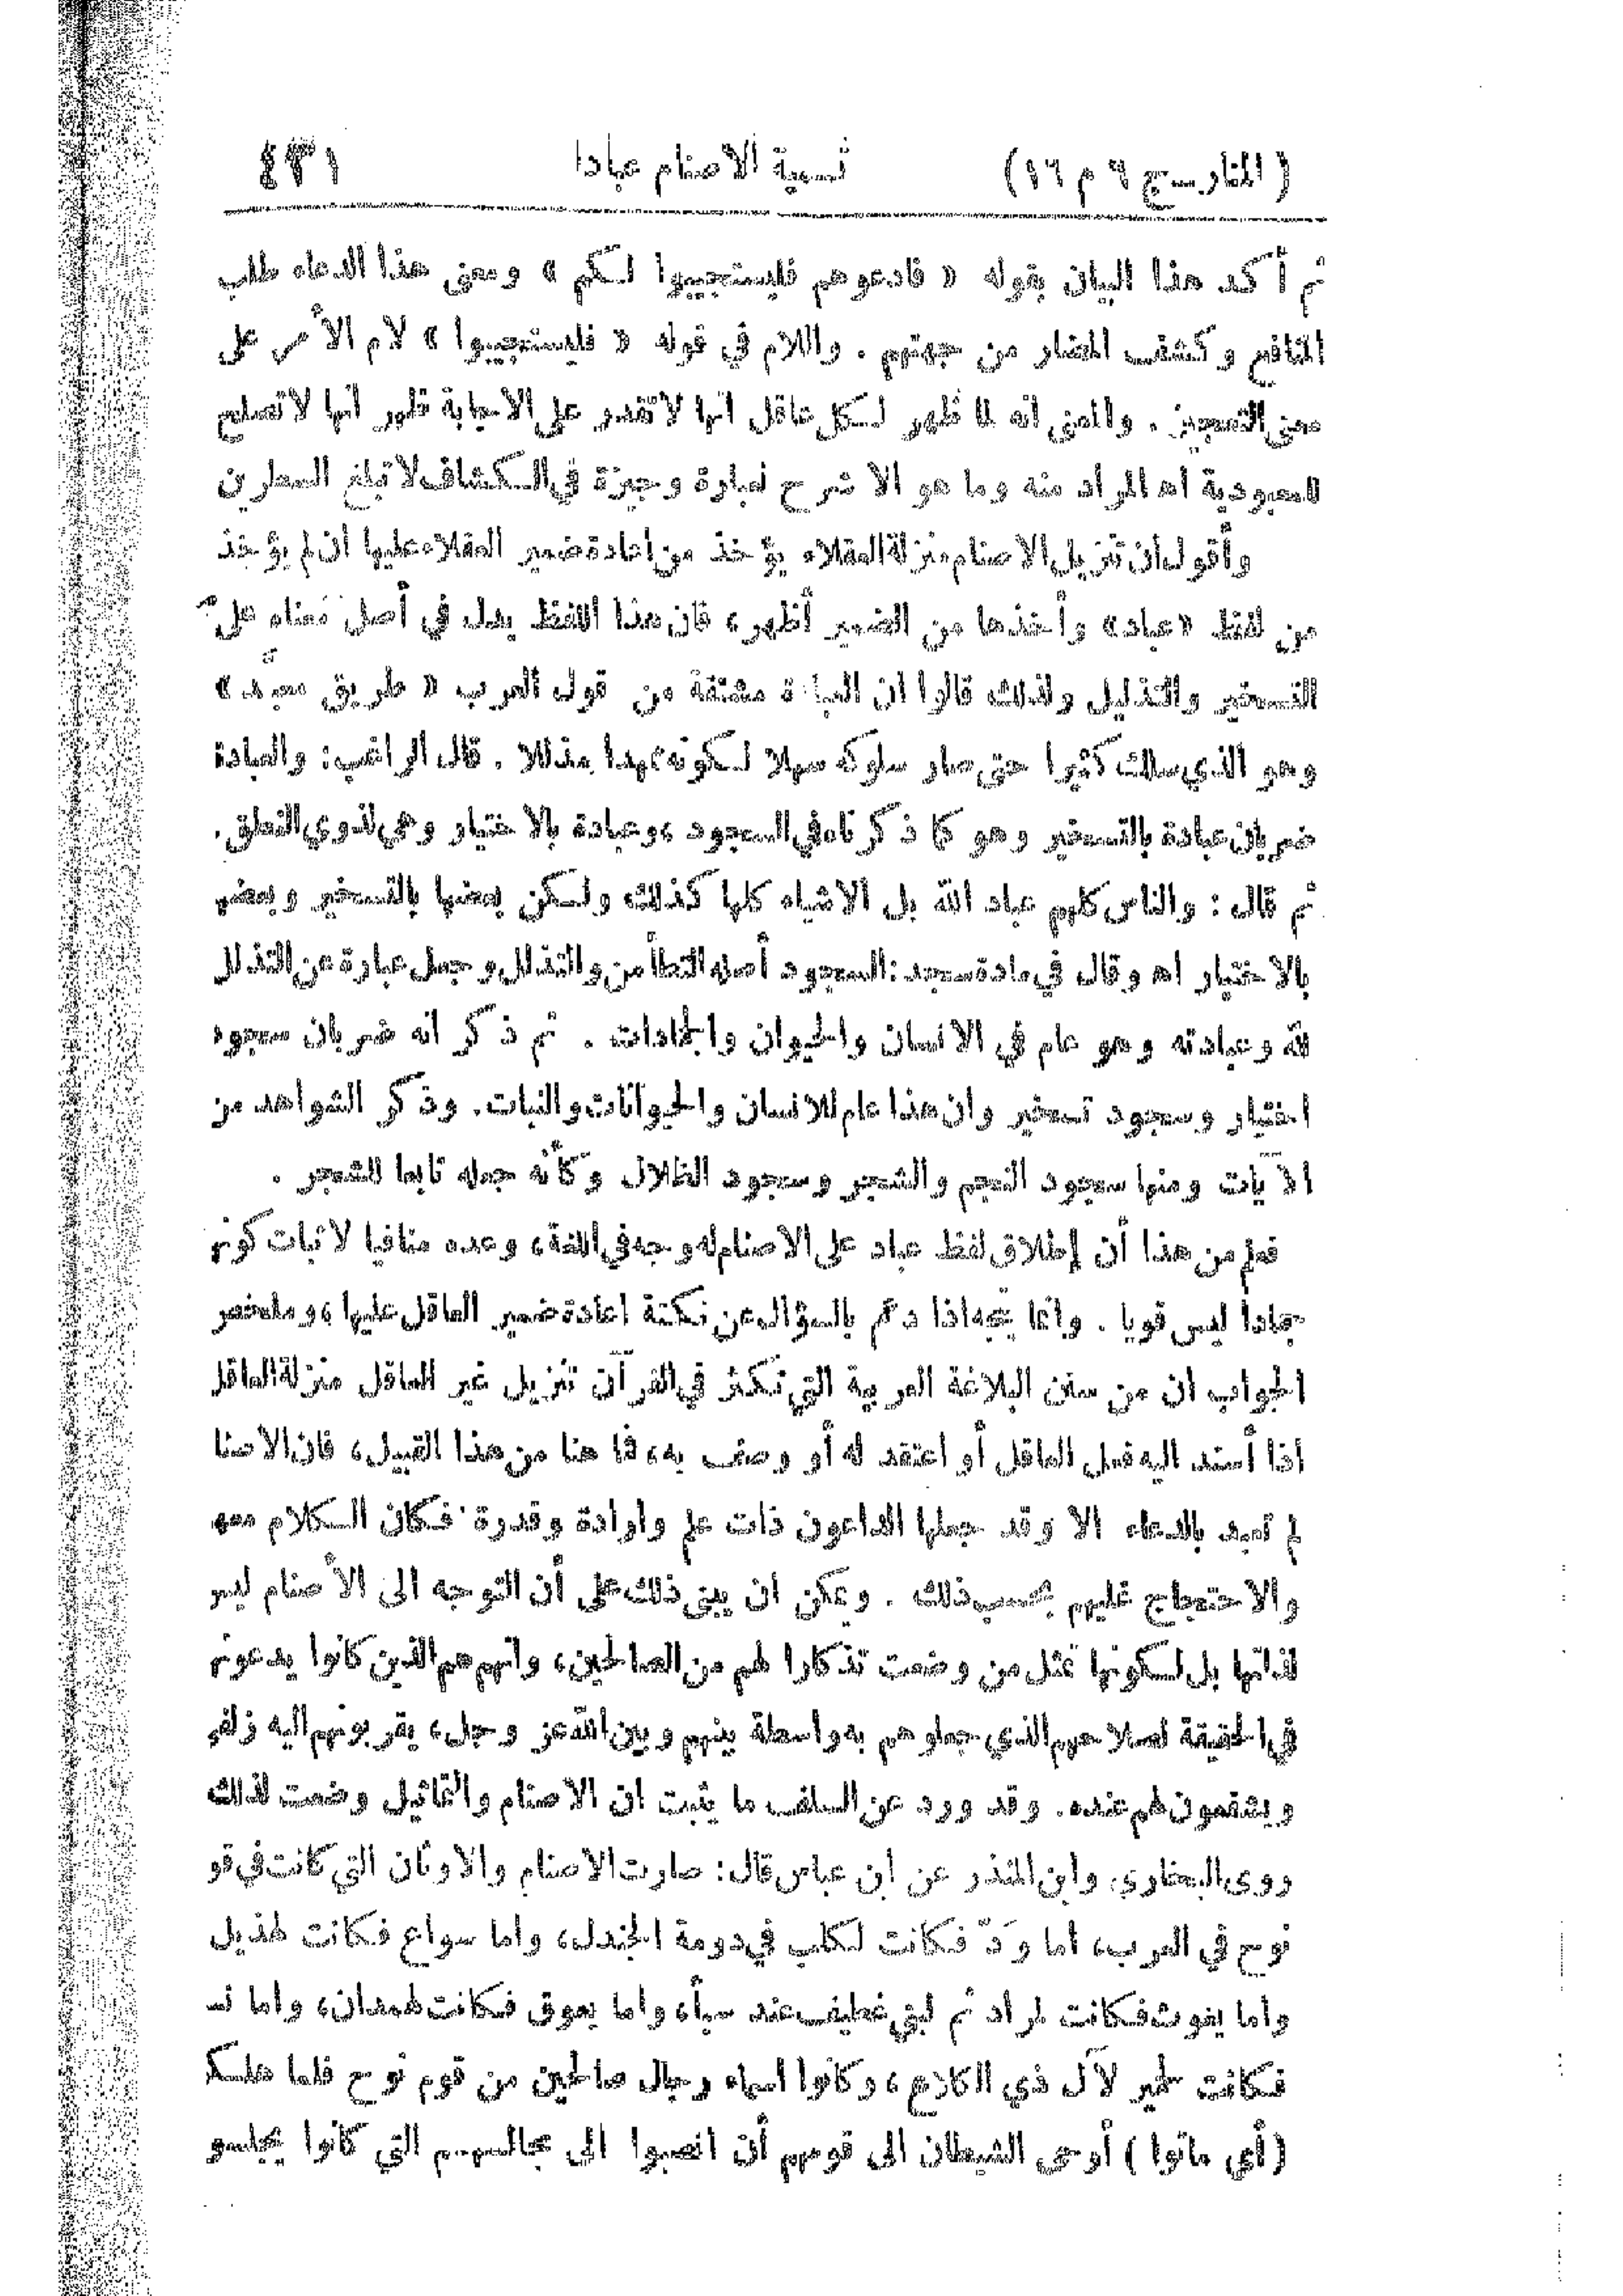 (المنار ـ ج ٩ م ١٦) تسمية الاصنام عبادا ٤٣١
ثم أكد هذا البيان بقوله « فادعوهم فليستجيبوا لكم » ومعنى هذا الدعاء طلب
المنافع وكشف المضار من جهتهم . واللام في قوله « فليستجيبوا » لام الأمر على
معنى التعجيز . والمعنى انه لما ظهر لكل عاقل انها لا تقدر على الاجابة ظهر انها لا تصلح
للمعبودية اه المراد منه وما هو الا شرح لعبارة وجيزة في الكشاف لا تبلغ السطرين
وأقول ان تنزيل الاصنام منزلة العقلاء يؤخذ من اعادة ضمير العقلاء عليها ان لم يؤخذ
من لفظ «عباد» وأخذها من الضمير أظهر، فان هذا اللفظ يدل في أصل معناه على
التسخير والتذليل ولذلك قالوا ان العبادة مشتقة من قول العرب « طريق معبَّد »
وهو الذي سلك كثيرا حتى صار سلوكه سهلا لكونه ممهدا مذللا . قال الراغب: والعبادة
ضربان عبادة بالتسخير وهو كما ذكرناه في السجود ، وعبادة بالاختيار وهي لذوي النطق.
ثم قال : والناس كلهم عباد الله بل الاشياء كلها كذلك ولكن بعضها بالتسخير وبعضه
بالاختيار اه وقال في مادة سجد : السجود أصله التطأمن والتذلل وجعل عبارة عن التذلل
لله وعبادته وهو عام في الانسان والحيوان والجمادات . ثم ذكر انه ضربان سجود
اختيار وسجود تسخير وان هذا عام للانسان والحيوانات والنبات. وذكر الشواهد من
الآيات ومنها سجود النجم والشجر وسجود الظلال وكأنه جعله تابعا للشجر .
فعلم من هذا أن إطلاق لفظ عباد على الاصنام له وجه في اللغة، وعده منافيا لاثبات كونه
جمادا ليس قويا . وانما يتجه اذا دعم بالسؤال عن نكتة اعادة ضمير العاقل عليها ، وملخصر
الجواب ان من سنن البلاغة العربية التي تكثر في القرآن تنزيل غير العاقل منزلة العاقل
اذا أسند اليه فعل العاقل أو اعتقد له أو وصف به، فما هنا من هذا القبيل، فان الاصنا
لم تعبد بالدعاء الا وقد جعلها الداعون ذات علم وارادة وقدرة فكان الكلام معه
والاحتجاج عليهم بحسب ذلك . ويمكن ان يبنى ذلك على أن التوجه الى الأصنام ليس
لذاتها بل لكونها تمثل من وضعت تذكارا لهم من الصالحين، وانهم هم الذين كانوا يدعونه
في الحقيقة لصلاحهم الذي جعلوهم به واسطة بينهم وبين الله عز وجل، يقربونهم اليه زلفى
ويشفعون لهم عنده. وقد ورد عن السلف ما يثبت ان الاصنام والتماثيل وضعت لذلك
روى البخاري وابن المنذر عن ابن عباس قال: صارت الاصنام والاوثان التي كانت في قو
نوح في العرب، اما ودّ فكانت لكلب في دومة الجندل، واما سواع فكانت لهذيل
واما يغوث فكانت لمراد ثم لبني غطيف عند سبأ، واما يعوق فكانت لهمدان، واما نسـ
فكانت لحمير لآل ذي الكلاع، وكانوا اسماء رجال صالحين من قوم نوح فلما هلكـ
(أي ماتوا) أوحى الشيطان الى قومهم أن انصبوا الى مجالسهم التي كانوا يجلسو